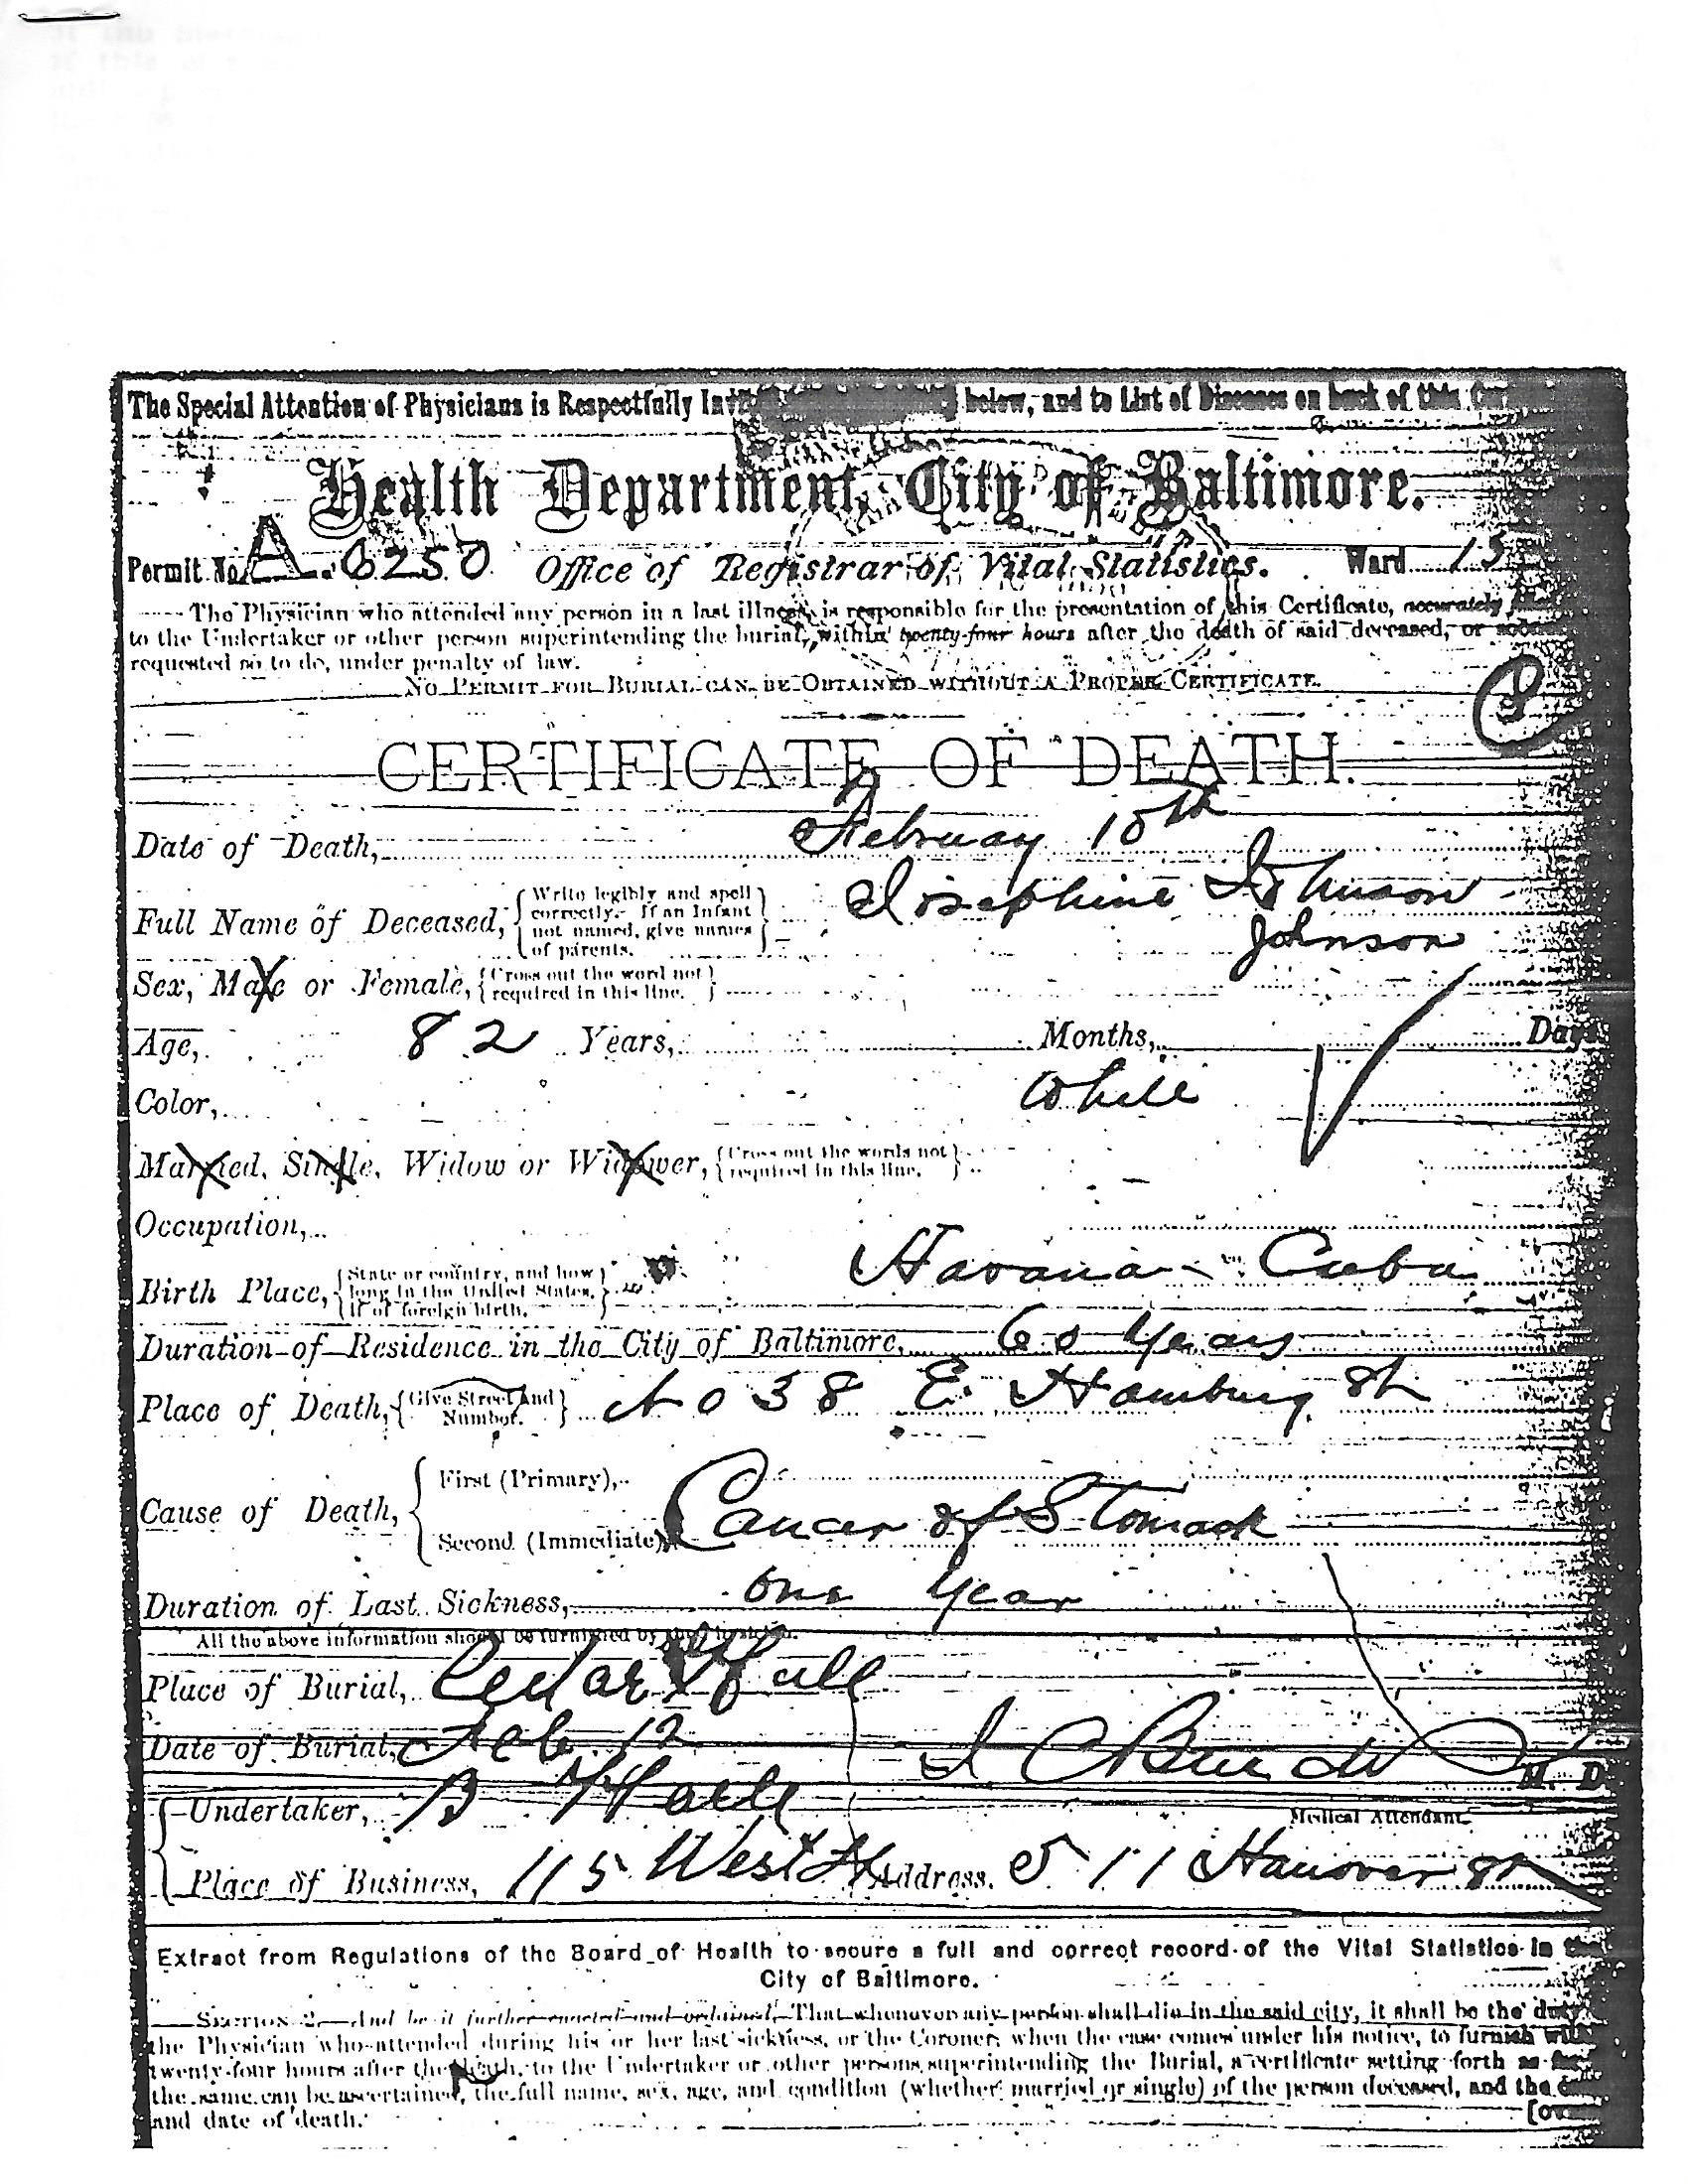 The Special Attention of Physicians is Respectfully below, and to List of Diseases on back of this
Health Department, City of Baltimore.
Permit No. A. 6250 Office of Registrar of Vital Statistics. Ward 15
The Physician who attended any person in a last illness is responsible for the presentation of this Certificate, accurately
to the Undertaker or other person superintending the burial, within twenty-four hours after the death of said deceased, or
requested so to do, under penalty of law.
No Permit for Burial can be Obtained without a Proper Certificate.
8
CERTIFICATE OF DEATH.
Date of Death, February 10th
Full Name of Deceased, {Write legibly and spell correctly. If an Infant not named, give names of parents.} Josephine Johnson
Johnson
Sex, Male or Female, {Cross out the word not required in this line.}
Age, 82 Years, Months, Days
Color, White
Married, Single, Widow or Widower, {Cross out the words not required in this line.}
Occupation,
Birth Place, {State or country, and how long in the United States, if of foreign birth.} Havana - Cuba
Duration of Residence in the City of Baltimore, 60 Years
Place of Death, {Give Street and Number.} No 38 E. Hamburg St
Cause of Death, { First (Primary),
Second (Immediate), Cancer of Stomach
Duration of Last Sickness, one year
All the above information should be furnished by the Physician.
Place of Burial, Cedar Hill
Date of Burial, Feb. 12
M. D.
Undertaker, B Medical Attendant
Place of Business, 115 West St Address, 511 Hanover St
Extract from Regulations of the Board of Health to secure a full and correct record of the Vital Statistics in the
City of Baltimore.
Section 2.—And be it further enacted and ordained, That whenever any person shall die in the said city, it shall be the duty
the Physician who attended during his or her last sickness, or the Coroner, when the case comes under his notice, to furnish
twenty-four hours after the death, to the Undertaker or other persons superintending the Burial, a certificate setting forth as far
the same can be ascertained, the full name, sex, age, and condition (whether married or single) of the person deceased, and the
and date of death.